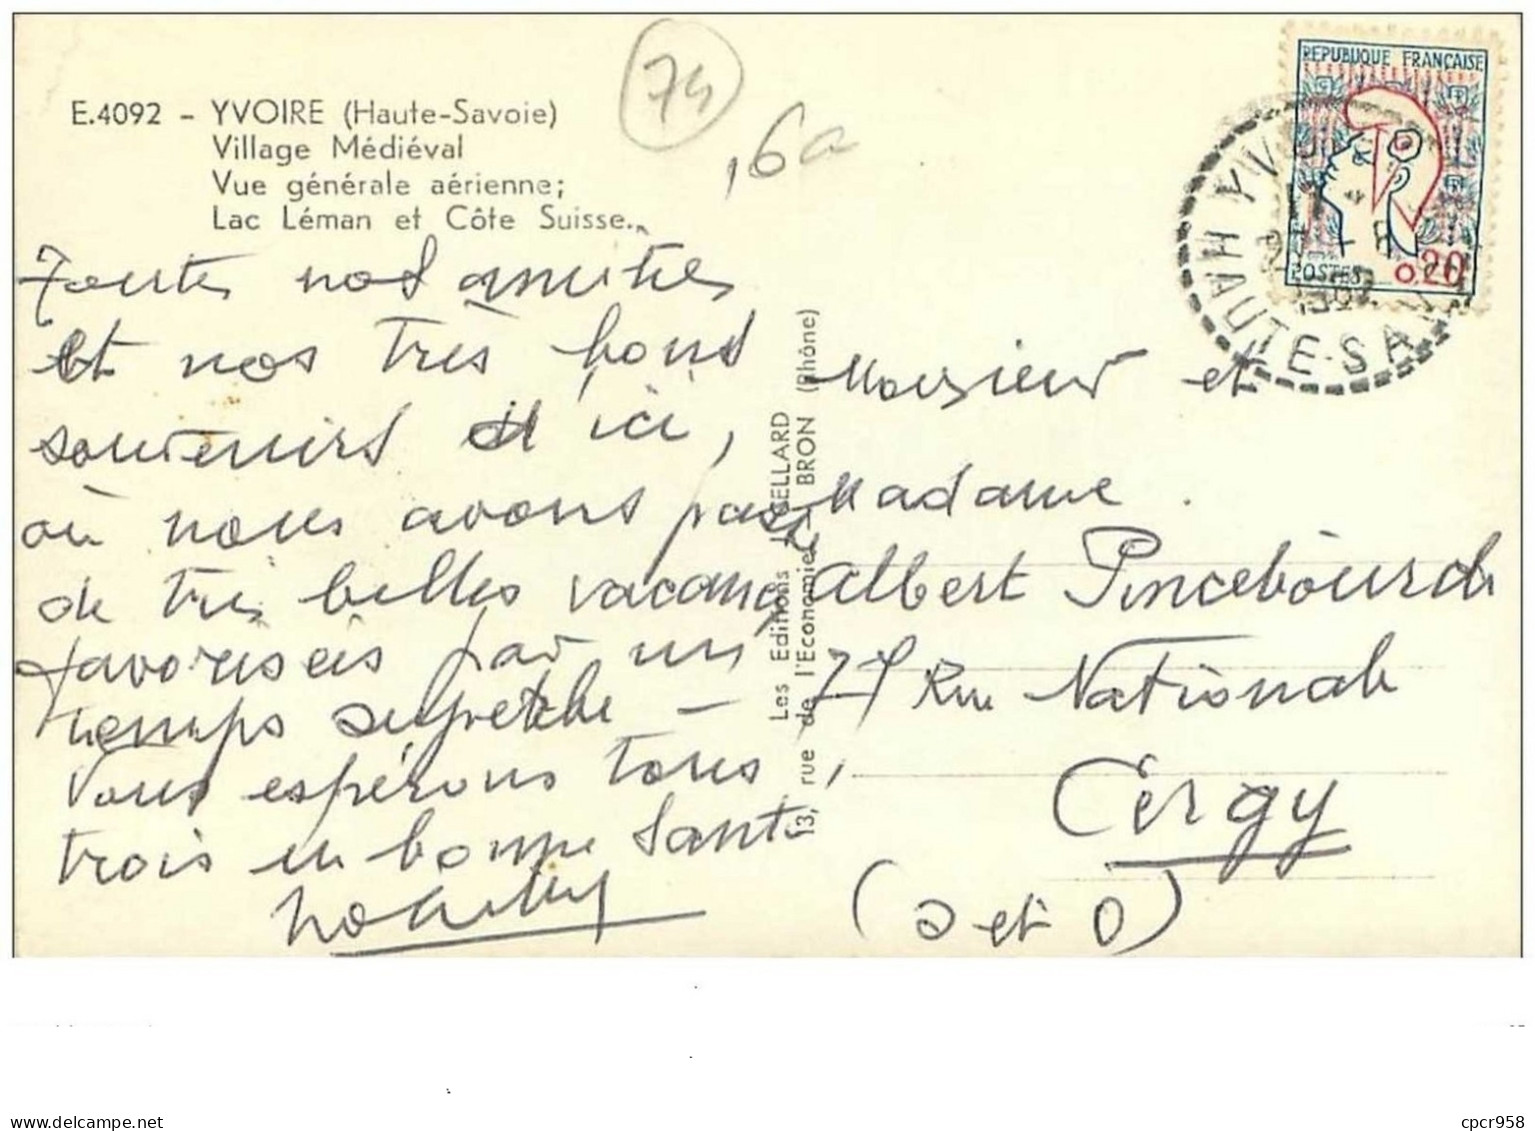 E.4092 - YVOIRE (Haute-Savoie)
Village Médiéval
Vue générale aérienne;
Lac Léman et Côte Suisse.
74
REPUBLIQUE FRANÇAISE
POSTES 0,20
HAUTE-SA
Toutes nos amitiés
Et nos très bons
souvenirs d'ici,
où nous avons passé
de très belles vacances
favorisées par un
temps superbe –
Vous espérons tous
trois en bonne santé
Les Editions J. CELLARD
13, rue de l'Economie, BRON (Rhône)
Monsieur et
Madame
Albert Pincebourde
Rue Nationale
Cergy
(S et O)
cpcr958